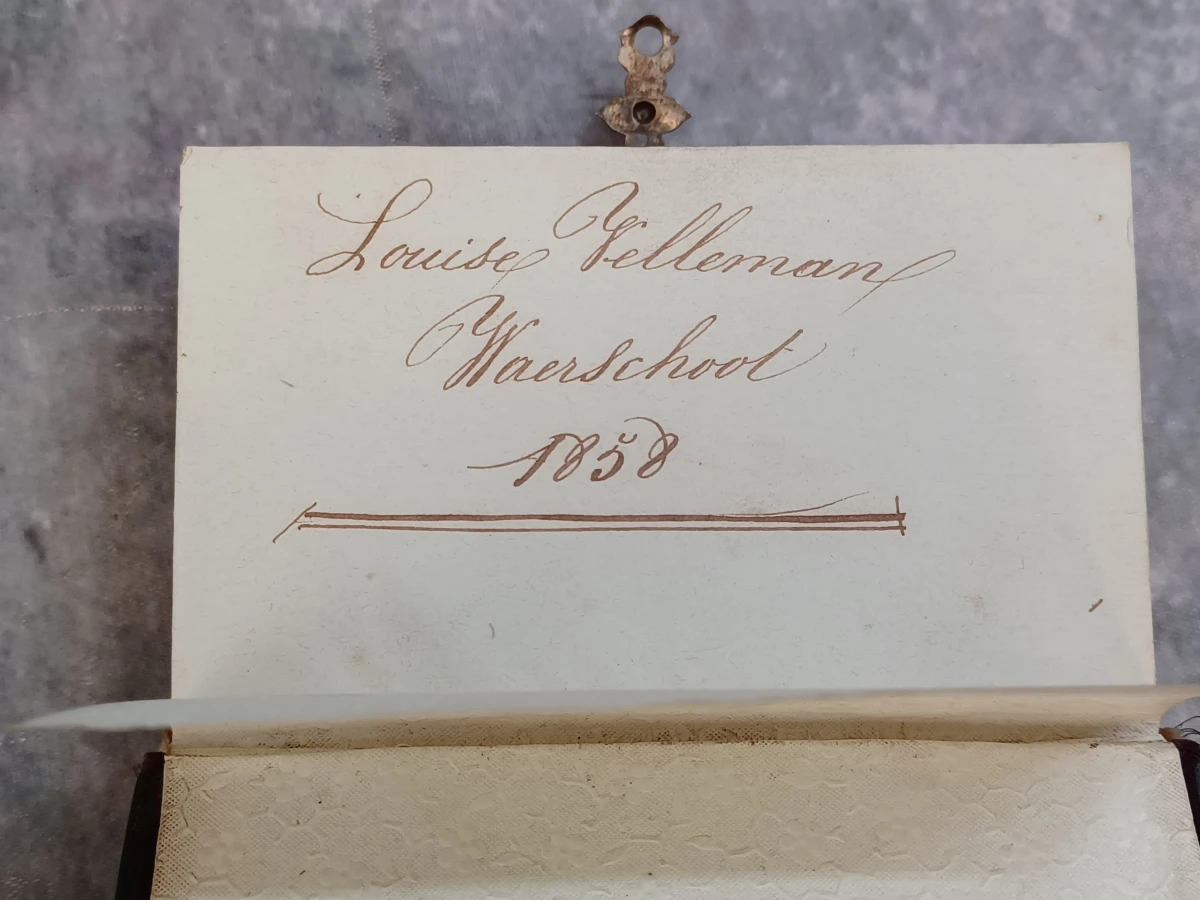 Louise Velleman
Waerschoot
1858